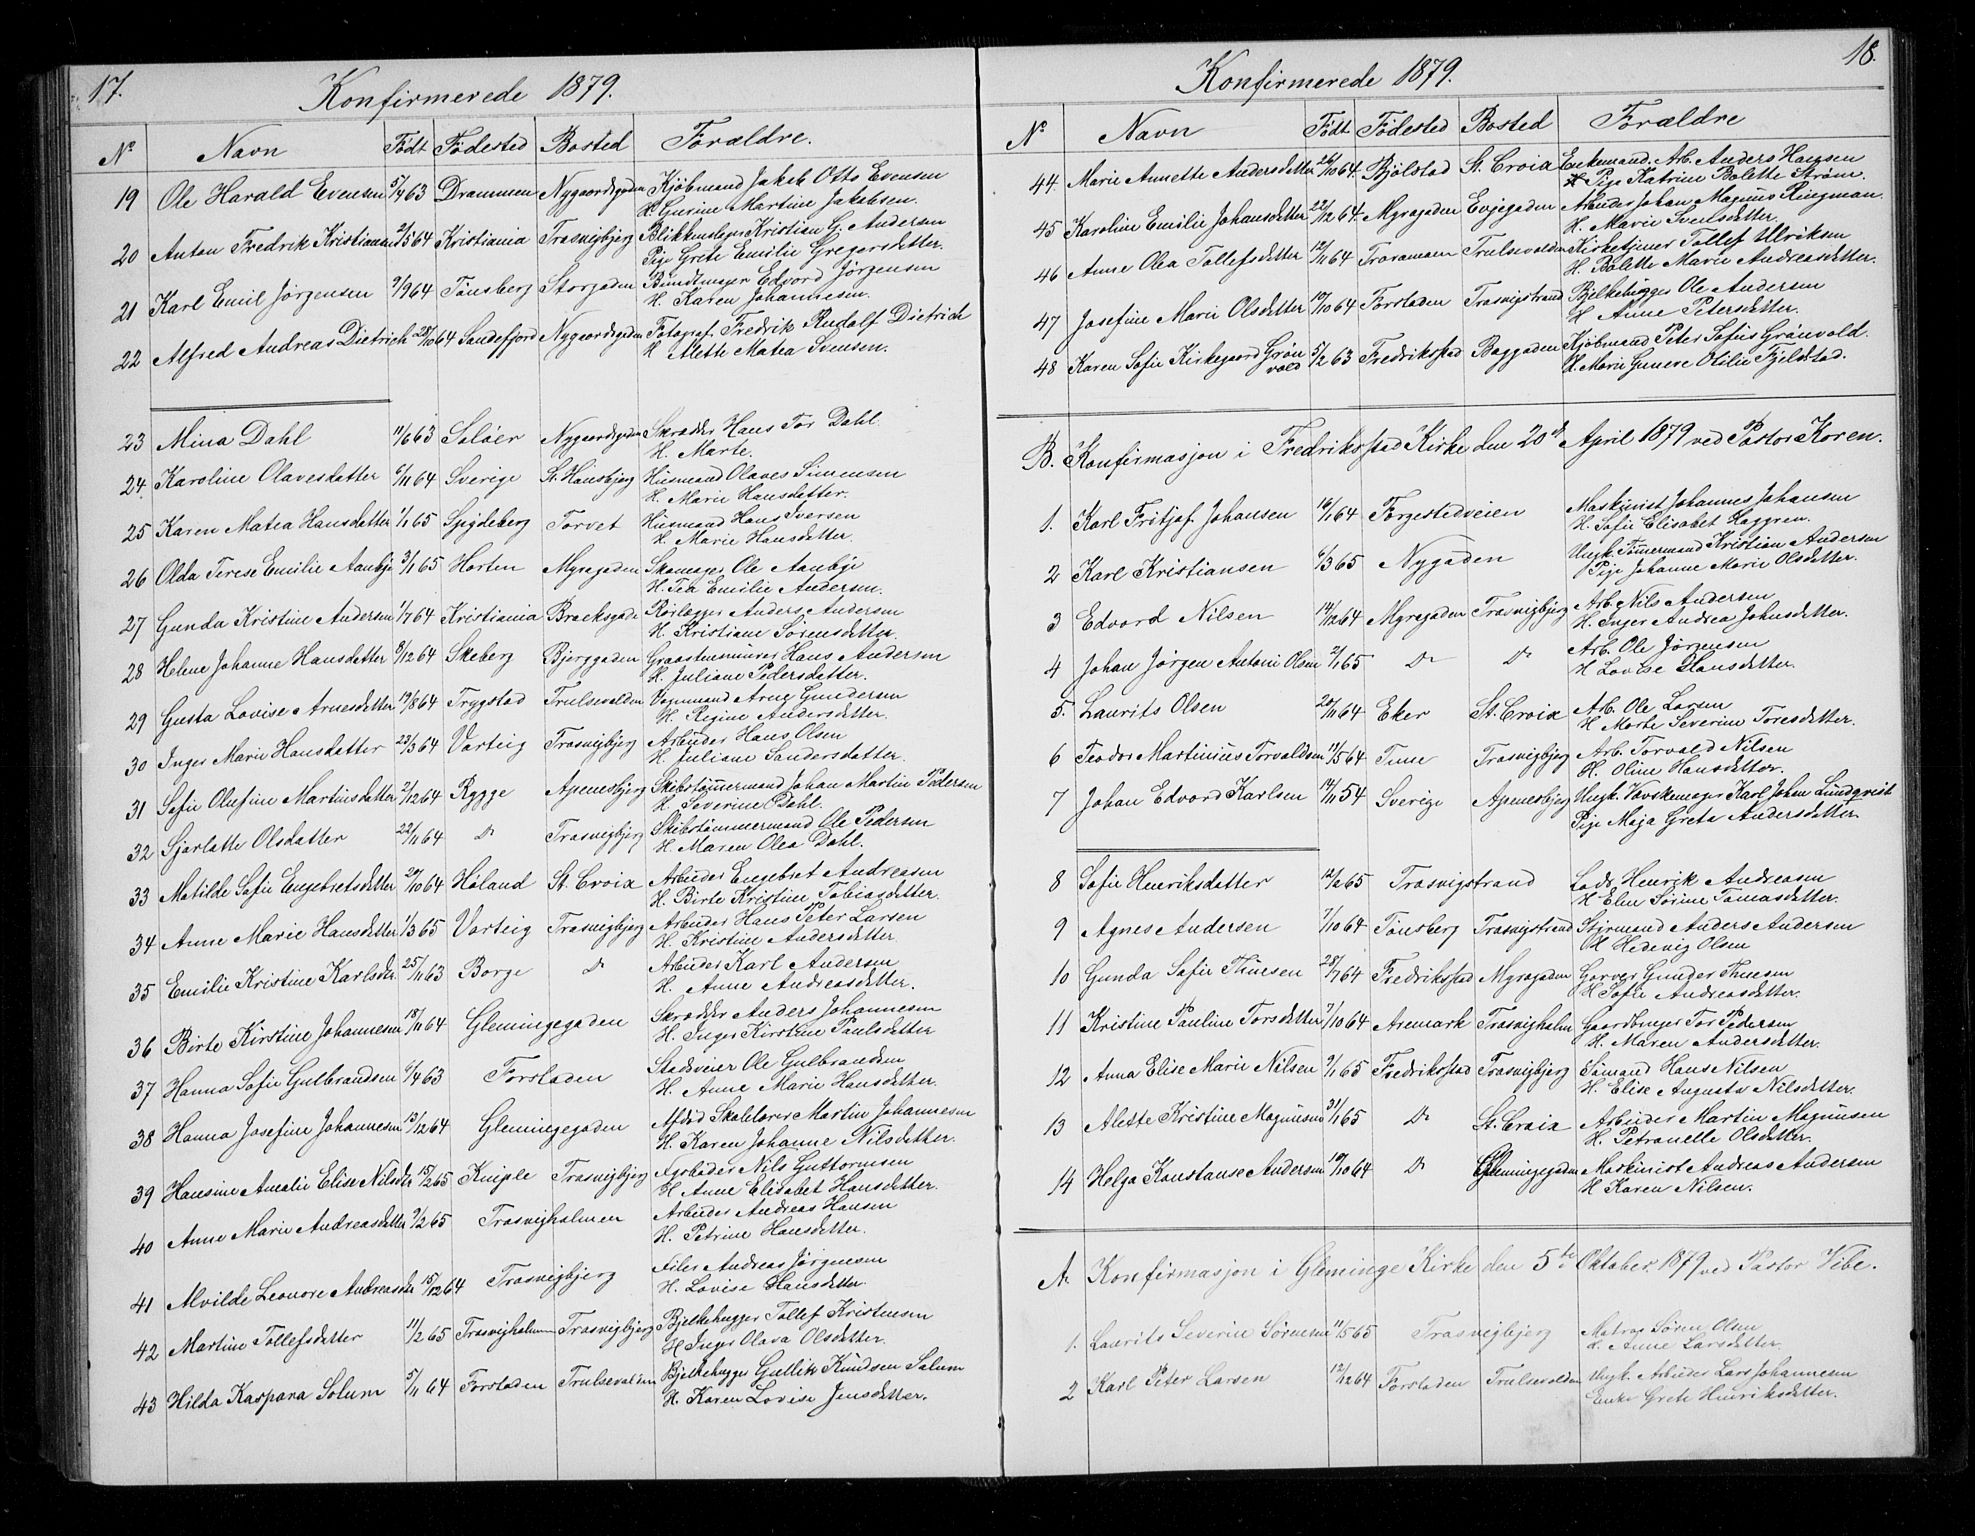 17.
Konfirmerede 1879.
No Navn Født Fødested Bosted Forældre.
19 Ole Harald Evensen 5/4 63 Drammen Nygaardsgaden Kjöbmand Jakob Otto Evensen
H. Gurine Martine Jakobsen.
20 Anton Fredrik Kristiansen 2/5 64 Kristiania Trosvigbjerg Blikkenslager Kristian G. Andersen
Pige Grete Emilie Gregersdatter.
21 Karl Emil Jørgensen 9/9 64 Tønsberg Storgaden Bundtmager Edvard Jørgensen
H. Karen Johannesen.
22 Alfred Andreas Dietrich 28/10 64 Sandefjord Nygaardsgaden Fotograf Fredrik Rudolf Dietrich
H. Alette Matea Svensen.
23 Mina Dahl 11/6 63 Soløer Nygaardsgaden Skrædder Hans Tor Dahl.
H. Marte.
24. Karoline Olavesdatter 6/11 64 Sverige St. Hansbjerg Husmand Olaves Simensen
H. Marie Hansdatter.
25 Karen Matea Hansdatter 1/1 65 Spydeberg Torvet Husmand Hans Iversen
H. Marie Hansdatter.
26 Olda Terese Emilie Aanbye 3/1 65 Horten Myregaden Skomager Ole Aanbye
H. Tea Emilie Andersen.
27 Gunda Kristine Andersen 1/7 64 Kristiania Brocksgade Rørlægger Anders Andersen
H. Kristiane Sørensdatter.
28 Helene Johanne Hansdatter 8/12 64 Skeberg Bjerggaden Graastensmurer Hans Andersen
H. Juliane Pedersdatter.
29 Gusta Lovise Arnesdatter 19/8 64 Trygstad Trulsevolden Vognmand Arne Gundersen
H. Regine Andersdatter.
30 Inger Marie Hansdatter 23/3 64 Varteig Trosvigbjerg Arbeider Hans Olsen
H. Juliane Sandersdatter.
31 Sofie Olufine Martinsdatter 2/12 64 Rygge Apenesbjerg Skibstømmermand Johan Martin Pedersen
H. Severine Dahl.
32 Sjarlotte Olsdatter 22/11 64 Do Trosvigbjerg Skibstømmermand Ole Pedersen
H. Maren Olea Dahl.
33 Matilde Sofie Engebretsdatter 20/10 64 Høland St. Croix Arbeider Engebret Andreasen
H. Birte Kristine Tobiasdatter.
34 Anne Marie Hansdatter 1/3 65 Varteig Trosvigbjerg Arbeider Hans Peter Larsen
H. Kristine Andersdatter
35 Emilie Kristine Karlsdtr. 25/11 63 Borge Do Arbeider Karl Andersen
H. Anne Andreasdatter.
36 Birte Kirstine Johannesen 18/11 64 Glemingegaden Skrædder Anders Johannesen
H. Inger Kirstine Paulsdatter
37 Hanna Sofie Gulbrandsen 6/4 63 Forstaden Stadsveier Ole Gulbrandsen
H. Anne Marie Hansdatter.
38 Hanna Josefine Johannesen 13/12 64 Glemingegaden Afdød Skolelærer Martin Johannesen
H. Karen Johanne Nilsdatter.
39 Hansine Amalie Elise Nilsdtr 15/2 65 Kniple Trosvigbjerg Arbeider Nils Guttormsen
H. Anne Elisabet Hansdatter.
40 Anne Marie Andreasdatter 9/2 65 Trosvigholmen Arbeider Andreas Hansen
H. Petrine Hansdatter.
41 Alvilde Leonore Andreasdtr 15/12 64 Trosvigbjerg Filer Andreas Jørgensen
H. Lovise Hansdatter.
42 Martine Tollefsdatter 11/2 65 Trosvigholmen Trosvigbjerg Bjelkehugger Tollef Kristensen
H. Inger Olava Olsdatter.
43 Hilda Kaspara Solum 5/11 64 Forstaden Trulsevolden Bjelkehugger Gullik Knudsen Solum
H. Karen Lovise Jensdatter.
18.
Konfirmerede 1879.
No Navn Født Fødested Bosted Forældre
44 Marie Annette Andersdatter 26/10 64. Bjølstad St. Croix Enkemand. Arb. Anders Hansen
Pige Katrine Bolette Strøm.
45 Karoline Emilie Johansdatter 22/12 64. Myragaden Evjegaden Arbeider Johan Magnus Ringman.
H. Marie Svensdatter.
46 Anne Olea Tollefsdatter 12/11 64 Traramoen Trulsevolden Kirketjener Tollef Ulriksen
H. Bolette Marie Andreasdatter.
47 Josefine Marie Olsdatter 19/10 64 Forstaden Trosvigstrand Bjelkehugger Ole Andersen
H. Anne Petersdatter.
48 Karen Sofie Kirkegaard Grønvold 5/2 63 Fredriksstad Baggaden Kjöbmand Peter Sofus Grönvold.
H. Marie Gunere Otilie Fjeldstad.
B. Konfirmasjon i Fredriksstad Kirke den 20de April 1879 ved Pastor Koren.
1. Karl Fritjof Johansen 16/1 64 Forgestedveien Maskinist Johannes Johansen
H. Sofie Elisabet Haggren.
2 Karl Kristiansen 6/3 65 Nygaden Ungk. Tømmermand Kristian Andersen
Pige Johanne Marie Olsdatter.
3 Edvard Nilsen 14/12 64 Myragaden Trosvigbjerg Arb. Nils Andersen
H. Inger Andrea Johnsdatter.
4 Johan Jørgen Antoni Olsen 21/1 65 Do Do Arb. Ole Jørgensen
H Lovise Hansdatter.
5. Laurits Olsen 20/11 64 Eker St. Croix Arb. Ole Larsen
H Marte Severine Toresdatter.
6 Teodor Martinius Torvaldsen 11/5 64 Tune Trosvigbjerg Arb. Torvald Nilsen
H. Oline Hansdatter.
7 Johan Edvard Karlsen 14/11 54 Sverige Apenesbjerg Ungk. Vævskemager Karl Johan Lundqvist
Pige Maja Greta Andersdatter
8 Sofie Henriksdatter 12/2 65 Trosvigstrand Lods Henrik Andreasen
H Elen Sørine Tomasdatter.
9 Agnes Andersen 7/10 64 Tønsberg Trosvigstrand Styrmand Anders Andersen
H Hedevig Olsen
10 Gunda Sofie Thuesen 28/7 64 Fredriksstad Myragaden Garver Gunder Thuesen
H Sofie Andreasdatter.
11 Kristine Pauline Torsdatter 7/10 64 Aremark Trosvigholm Gaardbruger Tor Pedersen
H. Maren Andersdatter.
12 Anna Elise Marie Nilsen 9/1 65 Fredriksstad Trosvigbjerg Sømand Hans Nilsen
H. Elise Augusta Nilsdatter.
13 Alette Kristine Magnusen 31/1 65 Do St. Croix Arbeider Martin Magnusen
H. Petronelle Olsdatter.
14 Helga Konstanse Andersen 10/10 64 Do Glemingegaden Maskinist Andreas Andersen
H Karen Nilsen.
A. Konfirmasjon i Gleminge Kirke den 5te Oktober. 1879 ved Pastor Vibe.
1. Laurits Severin Sørensen 11/5 65 Trosvigbjerg Matros Søren Olsen
H. Anne Larsdatter.
2 Karl Peter Larsen 12/12 64 Forstaden Trulsevolden Ungk. Arbeider Lars Johannesen
Enke Grete Henriksdatter.